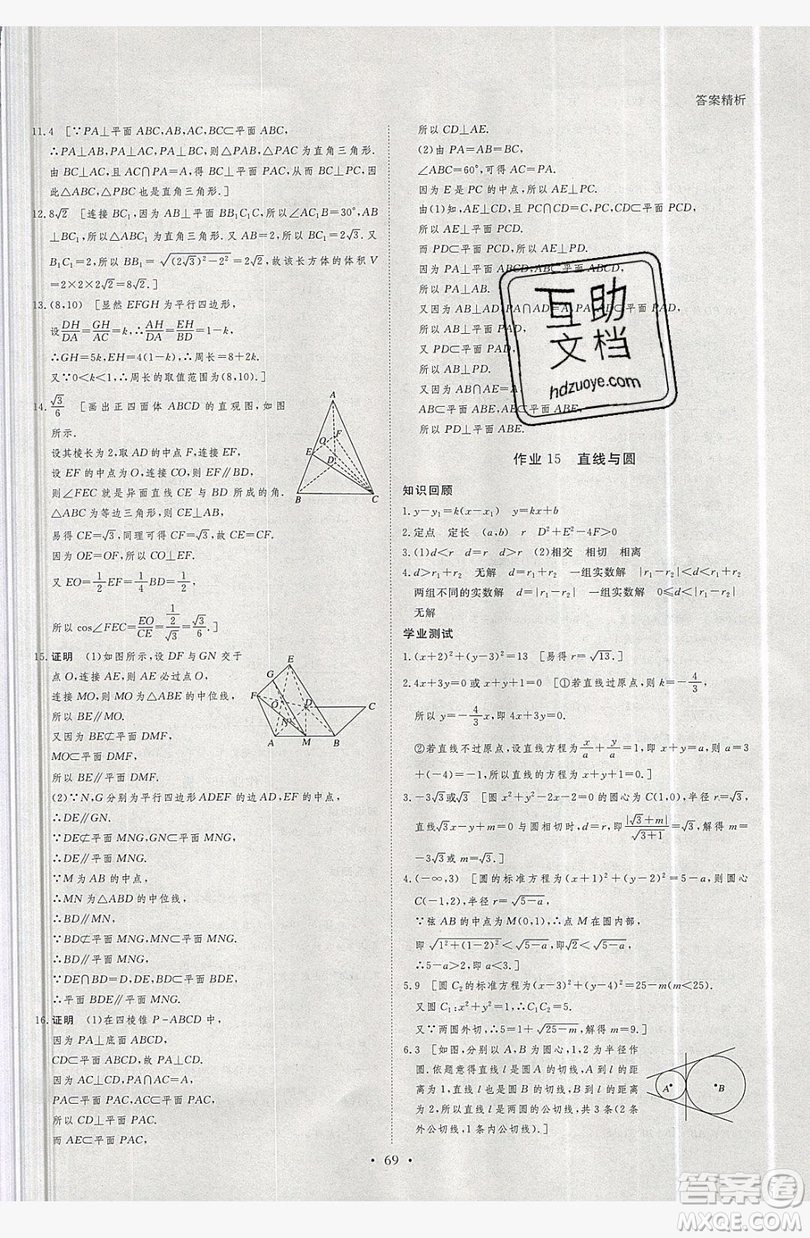 答案精析
11.4 [∵PA⊥平面ABC,AB,BC⊂平面ABC,
∴PA⊥BC,PA⊥AB,则△PAB为直角三角形.
由BC⊥AC,AC∩PA=A,得BC⊥平面PAC,从而BC⊥PC,
因此△ABC,△PBC也是直角三角形.]
12.8√2 [连接BC₁,因为AB⊥平面BB₁C₁C,所以∠AC₁B=30°,AB
⊥BC₁,所以△ABC₁为直角三角形.又AB=2,所以BC₁=2√3.又
B₁C₁=2,所以BB₁=√((2√3)²-2²)=2√2,故该长方体的体积V
=2×2×2√2=8√2.]
13.(8,10) [显然EFGH为平行四边形,
设DH/DA=GH/AC=k,∴AH/DA=EH/BD=1-k,
∴GH=5k,EH=4(1-k),∴周长=8+2k.
又∵0<k<1,∴周长的取值范围为(8,10).]
14.√3/6 [画出正四面体ABCD的直观图,如图
所示.
设其棱长为2,取AD的中点F,连接EF,
设EF的中点为O,连接CO,则EF∥BD,
则∠FEC就是异面直线CE与BD所成的角.
△ABC为等边三角形,则CE⊥AB,
易得CE=√3,同理可得CF=√3,故CE=CF.
因为OE=OF,所以CO⊥EF.
又EO=1/2EF=1/4BD=1/2,
所以cos∠FEC=EO/CE=(1/2)/√3=√3/6.]
15.证明 (1)如图所示,设DF与GN交于
点O,连接AE,则AE必过点O,
连接MO,则MO为△ABE的中位线,
所以BE∥MO.
又因为BE⊄平面DMF,
MO⊂平面DMF,
所以BE∥平面DMF.
(2)∵N,G分别为平行四边形ADEF的边AD,EF的中点,
∴DE∥GN.
又∵DE⊄平面MNG,GN⊂平面MNG,
∴DE∥平面MNG.
又∵M为AB的中点,
∴MN为△ABD的中位线,
∴BD∥MN.
又∵BD⊄平面MNG,MN⊂平面MNG,
∴BD∥平面MNG.
又∵DE∩BD=D,BD,DE⊂平面BDE,
∴平面BDE∥平面MNG.
16.证明 (1)在四棱锥P-ABCD中,
因为PA⊥底面ABCD,
CD⊂平面ABCD,所以PA⊥CD.
因为AC⊥CD,PA∩AC=A,
PA⊂平面PAC,AC⊂平面PAC,
所以CD⊥平面PAC.
而AE⊂平面PAC,
所以CD⊥AE.
(2)由PA=AB=BC,
∠ABC=60°,可得AC=PA.
因为E是PC的中点,所以AE⊥PC.
由(1)知,AE⊥CD,且PC∩CD=C,
所以AE⊥平面PCD.
而PD⊂平面PCD,
所以AE⊥PD.
因为PA⊥底面ABCD,
所以PA⊥AB.
又因为AB⊥AD,PA∩AD=A,
所以AB⊥平面PAD,
又PD⊂平面PAD,
所以AB⊥PD.
又因为AB∩AE=A,
AB⊂平面ABE,AE⊂平面ABE,
所以PD⊥平面ABE.
作业15 直线与圆
知识回顾
1.y-y₁=k(x-x₁) y=kx+b
2.定点 定长 (a,b) r D²+E²-4F>0
3.(1)d<r d=r d>r (2)相交 相切 相离
4.d>r₁+r₂ 无解 d=r₁+r₂ 一组实数解 |r₁-r₂|<d<r₁+r₂
两组不同的实数解 d=|r₁-r₂| 一组实数解 0≤d<|r₁-r₂|
无解
学业测试
1.(x+2)²+(y-3)²=13 [易得r=√13.]
2.4x+3y=0或x+y+1=0 [①若直线过原点,则k=-4/3,
所以y=-4/3x,即4x+3y=0.
②若直线不过原点,设直线方程为x/a+y/a=1,即x+y=a.
则a=3+(-4)=-1,所以直线的方程为x+y+1=0.]
3.-3√3或√3 [圆x²+y²-2x-2=0的圆心为C(1,0),半径r=√3,
直线√3x-y+m=0与圆相切时,d=r,即|√3+m|/√(3+1)=√3,解得m=
-3√3或√3.]
4.(-∞,3) [圆的标准方程为(x+1)²+(y-2)²=5-a,则圆心
C(-1,2),半径r=√(5-a),
∵弦AB的中点为M(0,1),∴点M在圆内部,
即√(1²+(1-2)²)<√(5-a),即√2<√(5-a).
∴5-a>2,即a<3.]
5.9 [圆C₂的标准方程为(x-3)²+(y-4)²=25-m(m<25).
又圆C₁:x²+y²=1,∴|C₁C₂|=5.
又∵两圆外切,∴5=1+√(25-m),解得m=9.]
6.3 [如图,分别以A,B为圆心,1,2为半径作
圆.依题意得直线l是圆A的切线,A到l的距
离为1,直线l也是圆B的切线,B到l的距离
为2,所以直线l是两圆的公切线,共3条(2条
外公切线,1条内公切线).]
互助
文档
hdzuoye.com
A
E
F
O
D
B
C
E
G
F
O
D
C
N
A
M
B
l
A
B
• 69 •
答案圈
MXQE.COM